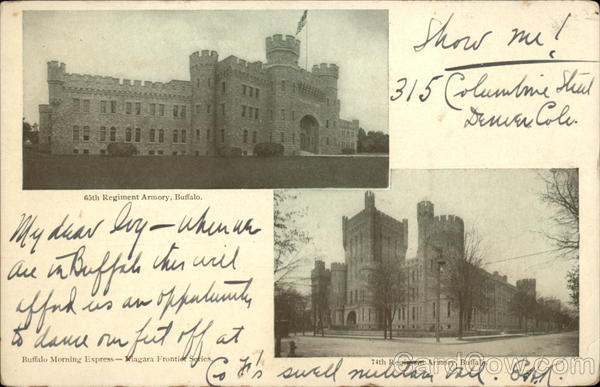 Show me!
315 Columbine Street
Denver, Colo.
65th Regiment Armory, Buffalo.
My dear Ivy – when we
are in Buffalo this will
afford us an opportunity
to dance our feet off at
Co F's swell military ball.
Buffalo Morning Express — Niagara Frontier Series.
74th Regiment Armory, Buffalo.
CardCow.com